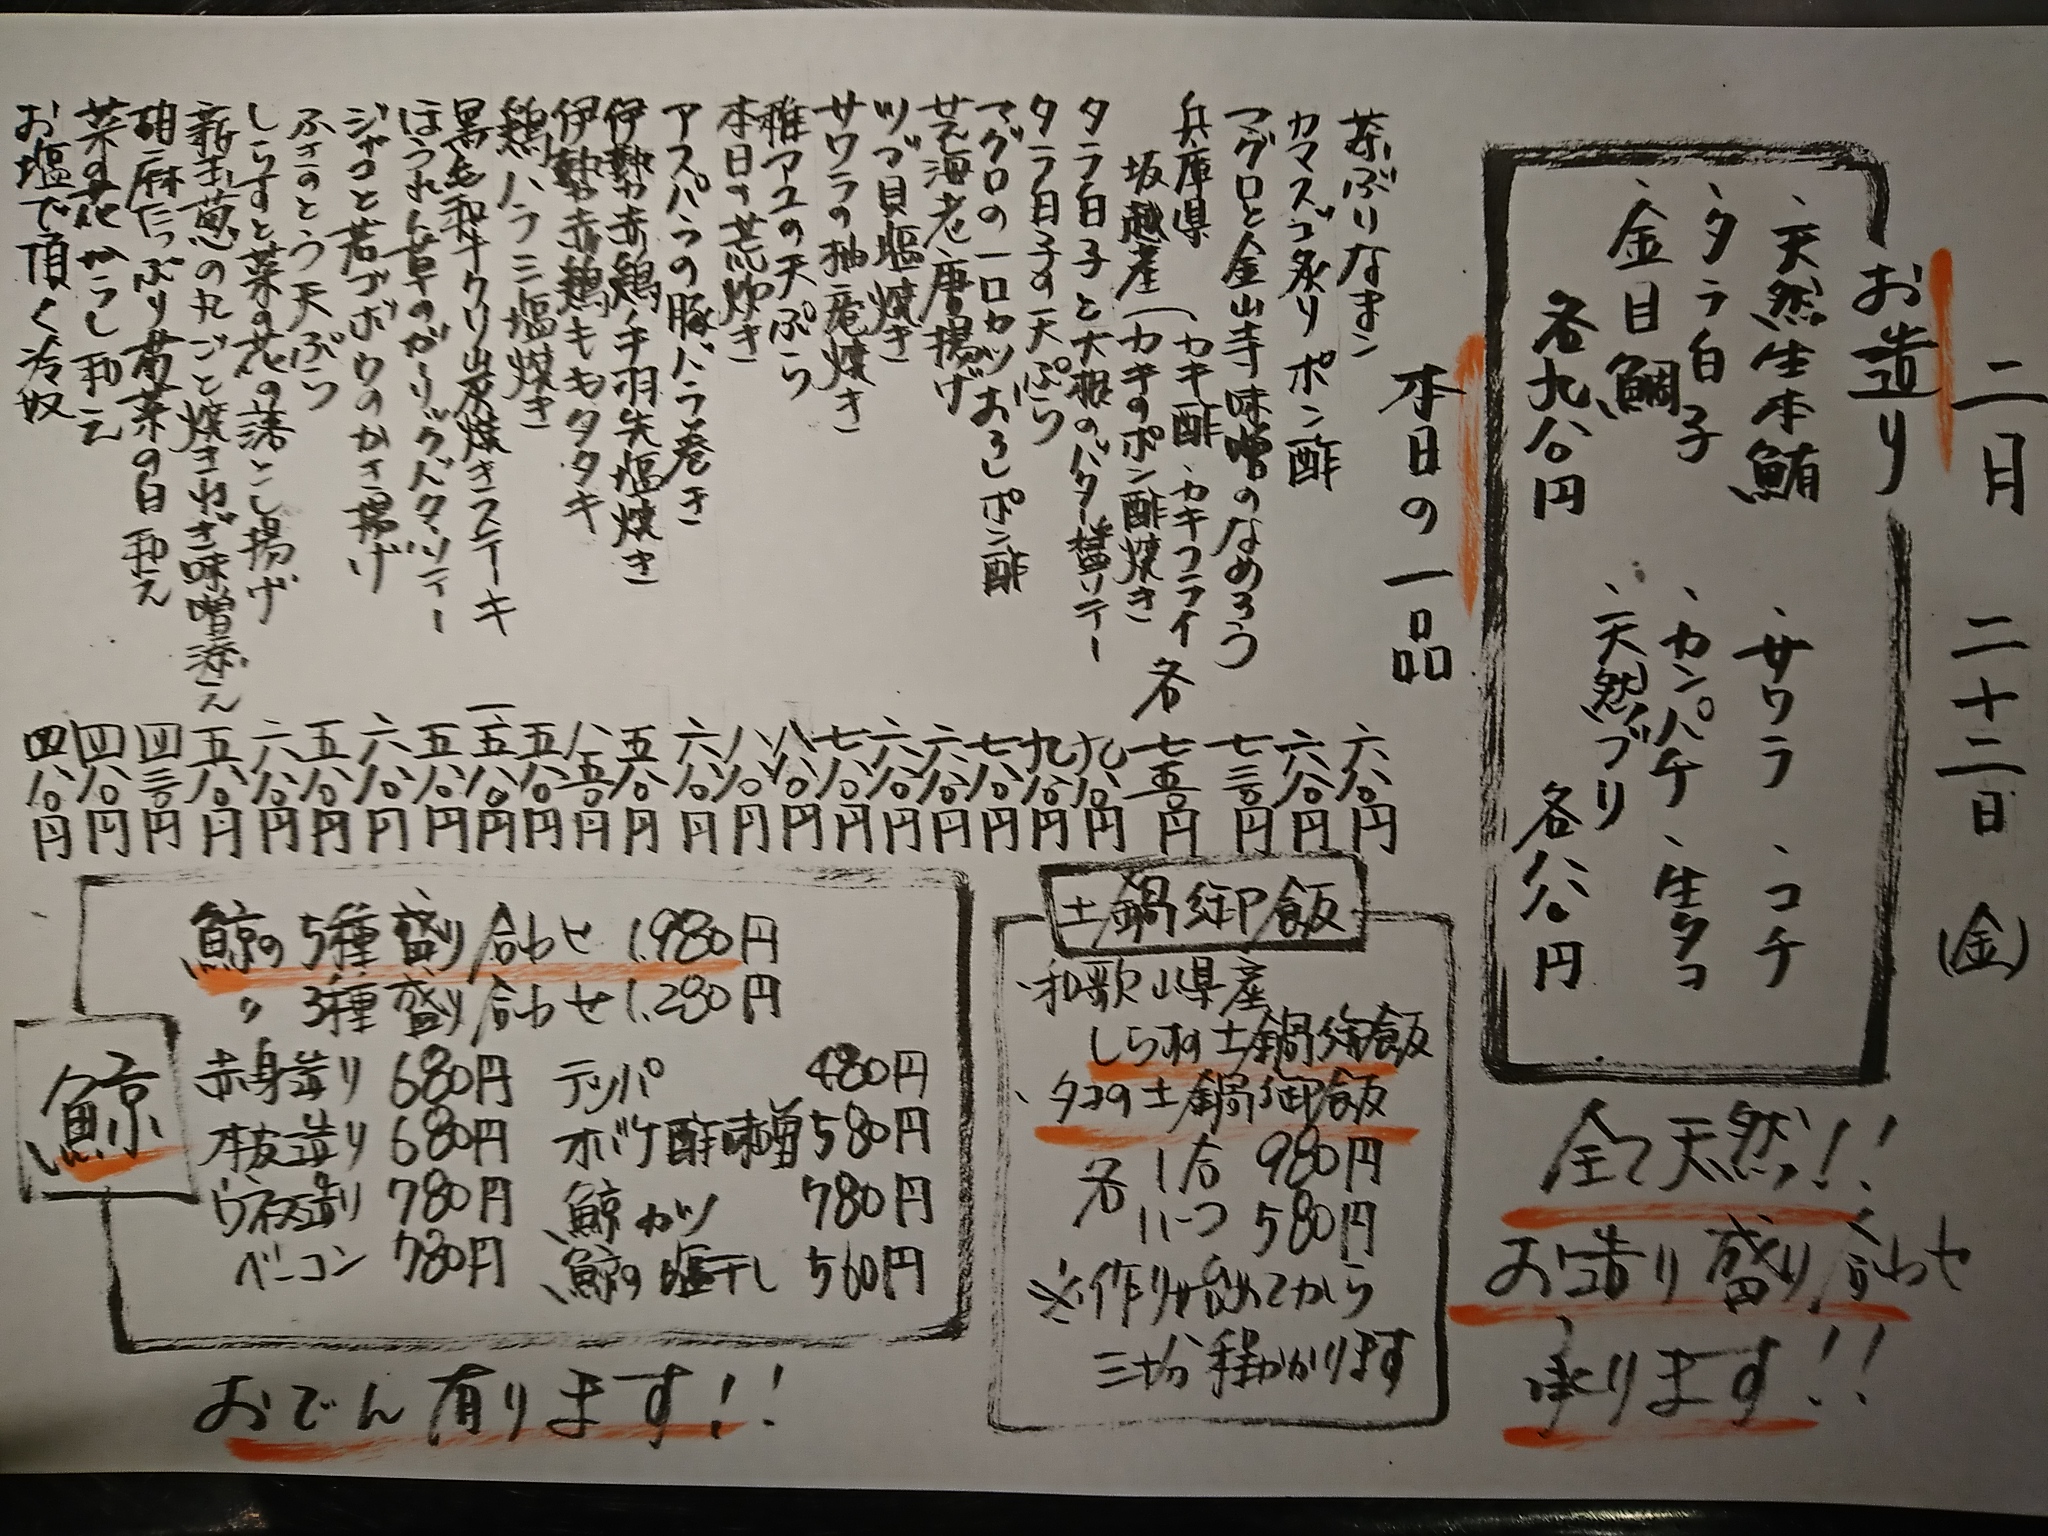 二月二十二日(金)
お造り
・天然生本鮪
・タラ白子
・金目鯛
各九八〇円
・サワラ ・コチ
・カンパチ ・生タコ
・天然ブリ
各八八〇円
全て天然!!
お造り盛り合わせ
承ります!!
本日の一品
茶ぶりなまこ 六八〇円
カマスゴ炙りポン酢 六八〇円
マグロと金山寺味噌のなめろう 七三〇円
兵庫県
坂越産
カキ酢、カキフライ
カキのポン酢焼き 各 七五〇円
タラ白子と大根のバター醤ソテー 九八〇円
タラ白子の天ぷら 九八〇円
マグロの一口カツおろしポン酢 七八〇円
芝海老唐揚げ 六八〇円
ツブ貝塩焼き 六八〇円
サワラの柚庵焼き 七八〇円
稚アユの天ぷら 八八〇円
本日の荒炊き 八八〇円
アスパラの豚バラ巻き 六八〇円
伊勢赤鶏手羽先塩焼き 五八〇円
伊勢赤鶏モモタタキ 八五〇円
鶏ハラミ塩焼き 五八〇円
黒毛和牛クリ炭焼きステーキ 一、五八〇円
ほうれん草のガーリックバターソテー 五八〇円
ジャコと若ゴボウのかき揚げ 六八〇円
ふきのとう天ぷら 五八〇円
しらすと菜の花の落とし揚げ 六八〇円
新玉葱の丸ごと焼きねぎ味噌添え 五八〇円
胡麻たっぷり春菜の白和え 四三〇円
菜の花からし和え 四八〇円
お塩で頂く冷奴 四八〇円
土鍋御飯
・和歌山県産
しらすの土鍋御飯
・タコの土鍋御飯
各 1合 980円
ハーフ 580円
※作り始めてから
三十分程かかります
鯨
鯨の5種盛り合わせ 1,980円
〃 3種盛り合わせ 1,280円
赤身造り 680円 テッパ 480円
本皮造り 680円 オバケ酢味噌 580円
ウネス造り 780円 鯨カツ 780円
ベーコン 780円 鯨の塩干し 560円
おでん有ります!!